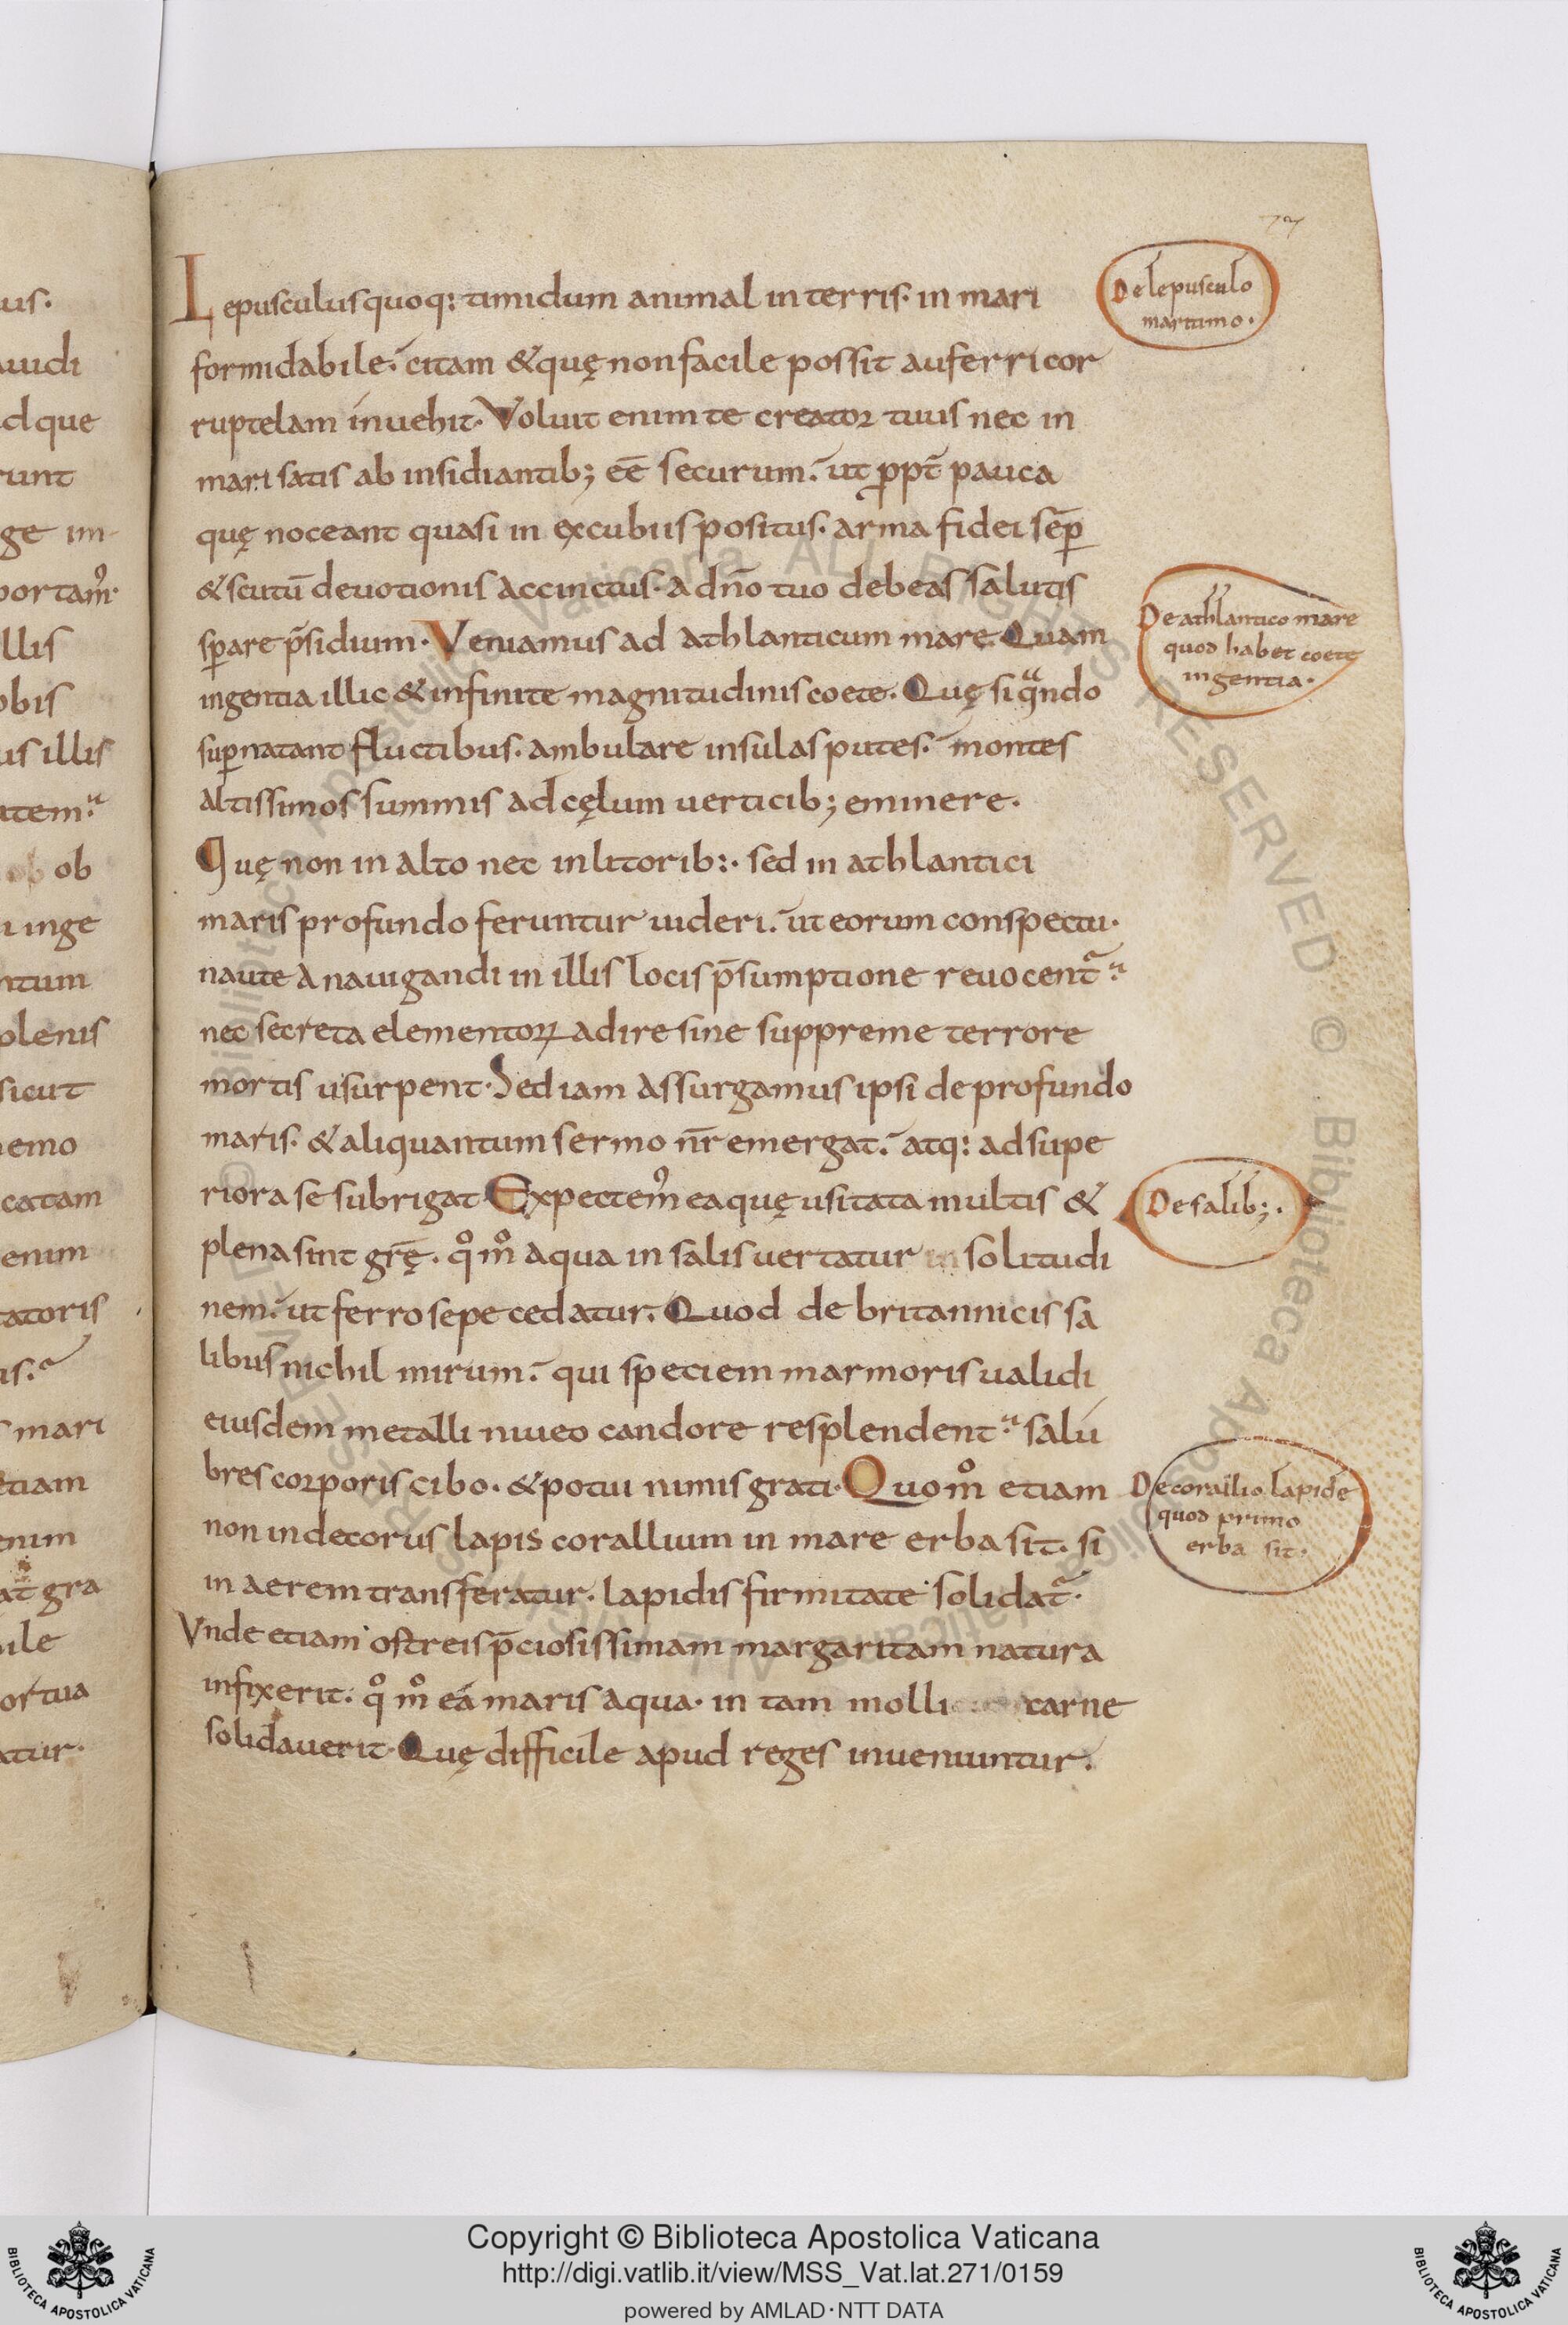 Lepusculus quoq: timidum animal in terris. in mari
De lepusculo
maritimo.
formidabile. citam & quę non facile possit auferri cor
ruptelam inuehit. Voluit enim te creator tuus nec in
mari satis ab insidiantib; eē securum. ut ꝓpt̄ pauca
quę noceant quasi in excubiis positus. arma fidei semꝑ
& scutū deuotionis accinctus. a dn̄o tuo debeas salutis
sꝑare p̄sidium. Veniamus ad athlanticum mare. Quam
De athlantico mare
quod habet coete
ingentia.
ingentia illic & infinite magnitudinis coete. Quę si qͣndo
suꝑnatant fluctibus. ambulare insulas putes. montes
altissimos summis ad cęlum uerticib; eminere.
Quę non in alto nec in litorib:. sed in athlantici
maris profundo feruntur uideri. ut eorum conspectu.
naute a nauigandi in illis locis p̄sumptione reuocent᷒.
nec secreta elementoꝝ adire sine suppreme terrore
mortis usurpent. Sed iam assurgamus ipsi de profundo
maris. & aliquantum sermo nr̄ emergat. atq: ad supe
riora se subrigat. Expectem᷒ ea quę usitata multis &
De salib;.
plena sint gr̄ę. qͦ mͦ aqua in salis uertatur solitudi
nem. ut ferro sepe cedatur. Quod de britannicis sa
libus nichil mirum. qui speciem marmoris ualidi
eiusdem metalli niueo candore resplendent. salu
bres corporis cibo. & potui nimis grati. Quo mͦ etiam
De corallio lapide
quod primo
erba sit.
non indecorus lapis corallium in mare erba sit. si
in aerem transferatur. lapidis firmitate solidat᷒.
Vnde etiam ostreis p̄ciosissimam margaritam natura
infixerit. qͦ mͦ eá maris aqua. in tam molli carne
solidauerit. Quę difficile apud reges inueniuntur.
us.
uidi
dque
runt
ge im
portam᷒.
llis
obis
us illis
item.
ob
u inge
ntum
plenis
sicut
nemo
catam
enim
tatoris
is.
s mari
etiam
enim
at̄ gra
uile
ortua
atur.
© Biblioteca Apostolica Vaticana ALL RIGHTS RESERVED
Copyright © Biblioteca Apostolica Vaticana
http://digi.vatlib.it/view/MSS_Vat.lat.271/0159
powered by AMLAD·NTT DATA
BIBLIOTECA APOSTOLICA VATICANA
BIBLIOTECA APOSTOLICA VATICANA